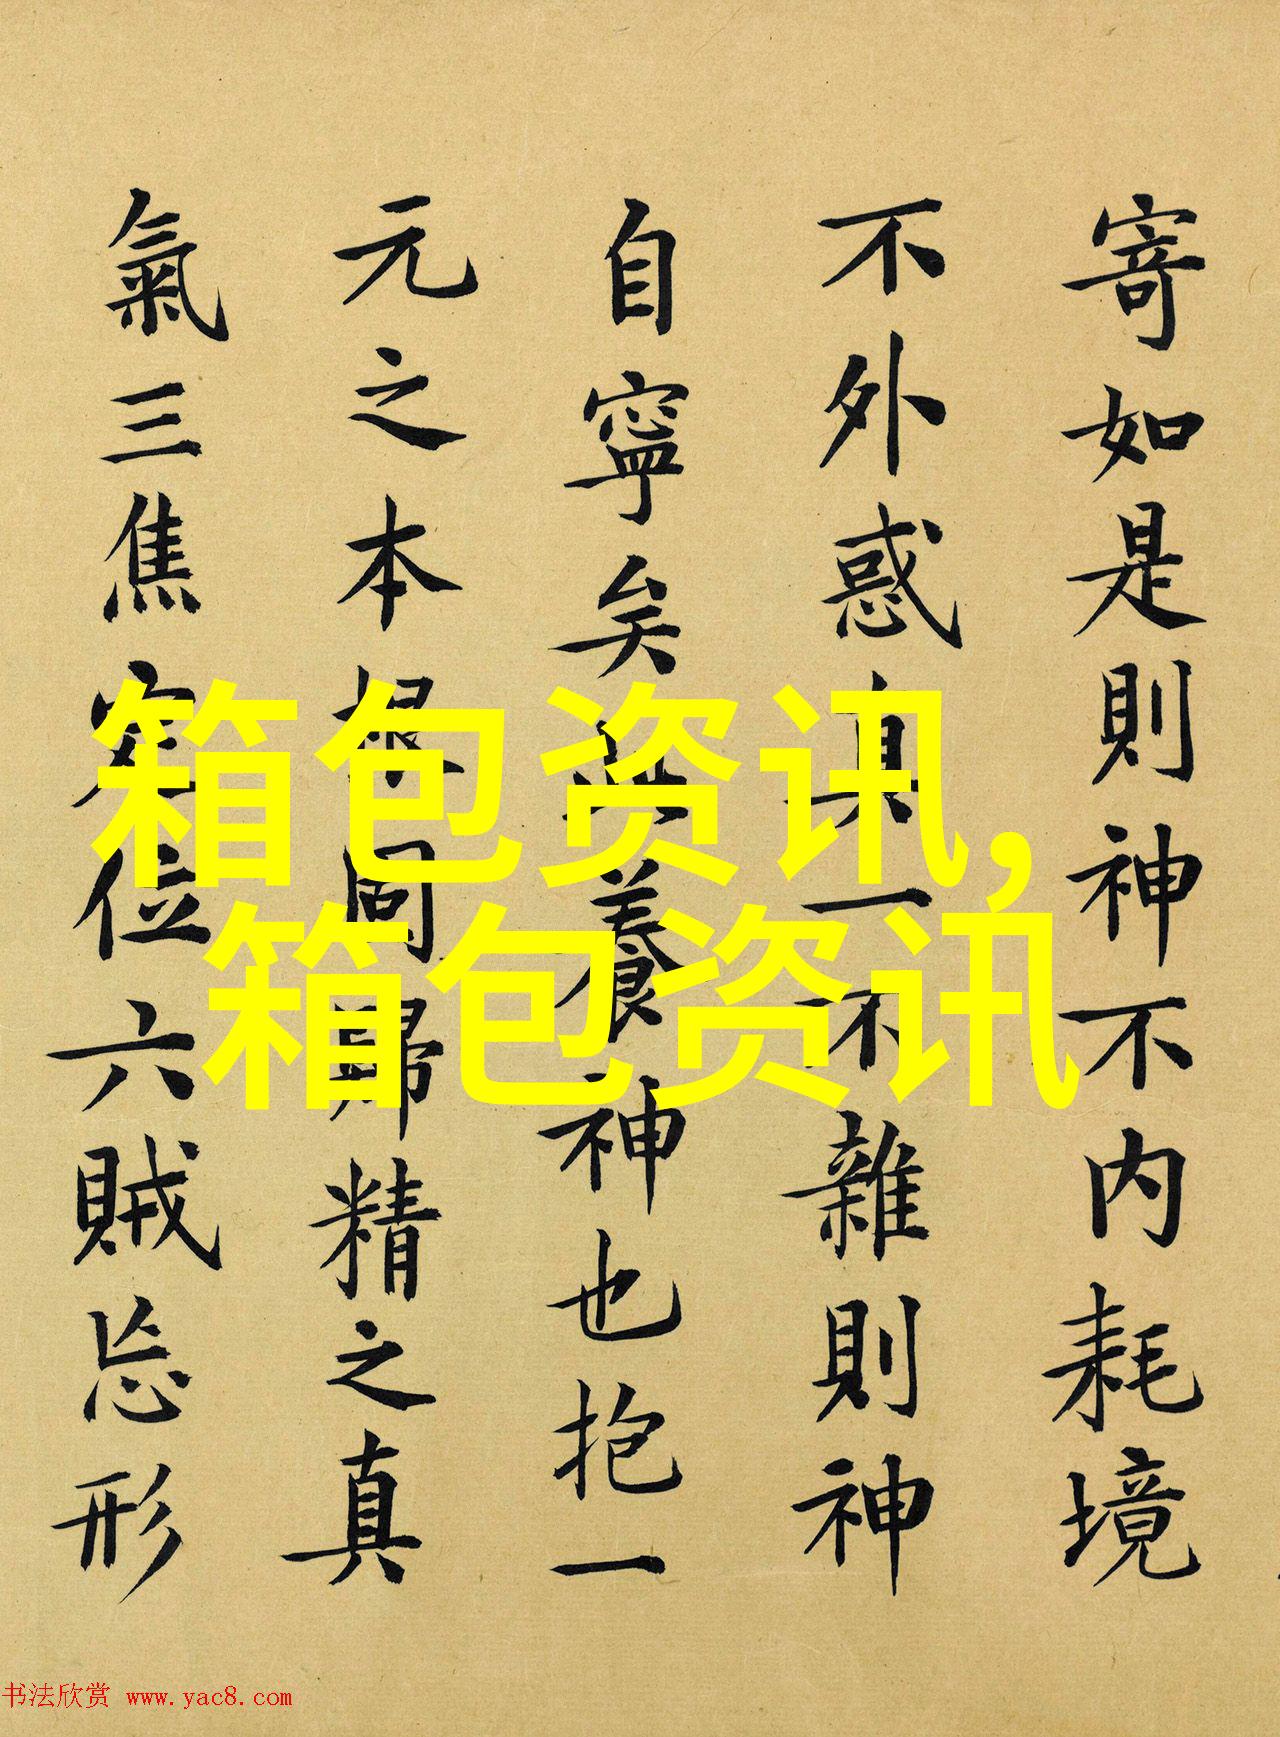 寄如是則神不内耗境
不外惑真一不雜則神
自寧矣此養神也抱一
元之本根固歸精之真
氣三焦定位六賊忘形
箱包资讯,
箱包资讯
书法欣赏 www.yac8.com